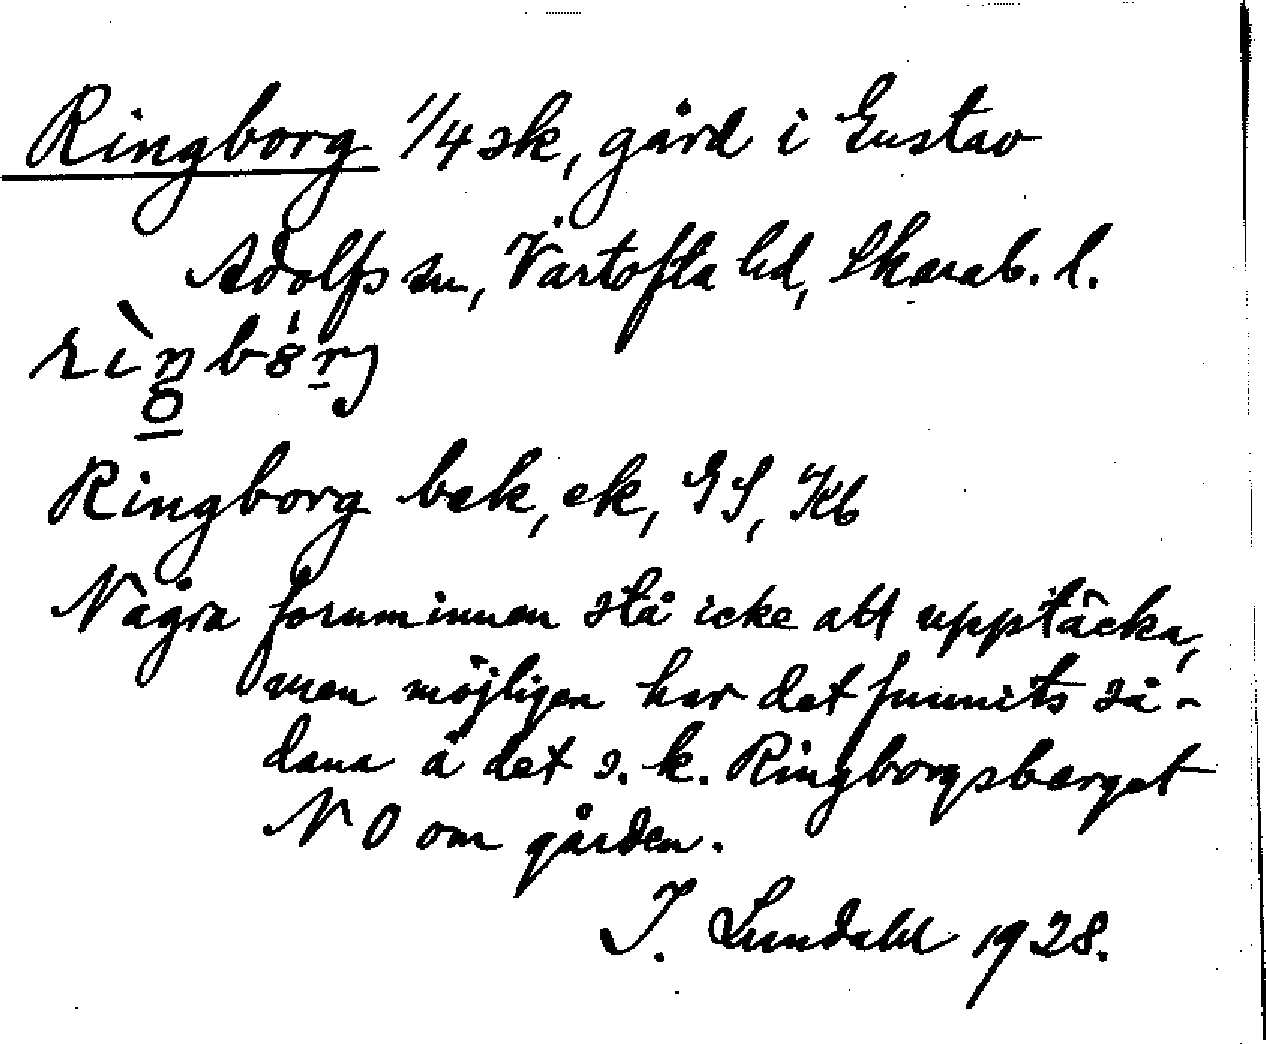 Ringborg 1/4 sk, gård i Gustav
Adolfs sn, Vartofta hd, Skarab. l.
Ringborg bek, ek, GS, Kb
Några fornminnen stå icke att upptäcka,
men möjligen har det funnits så-
dana å det s. k. Ringborgsberget
NO om gården.
I. Lundahl 1928.